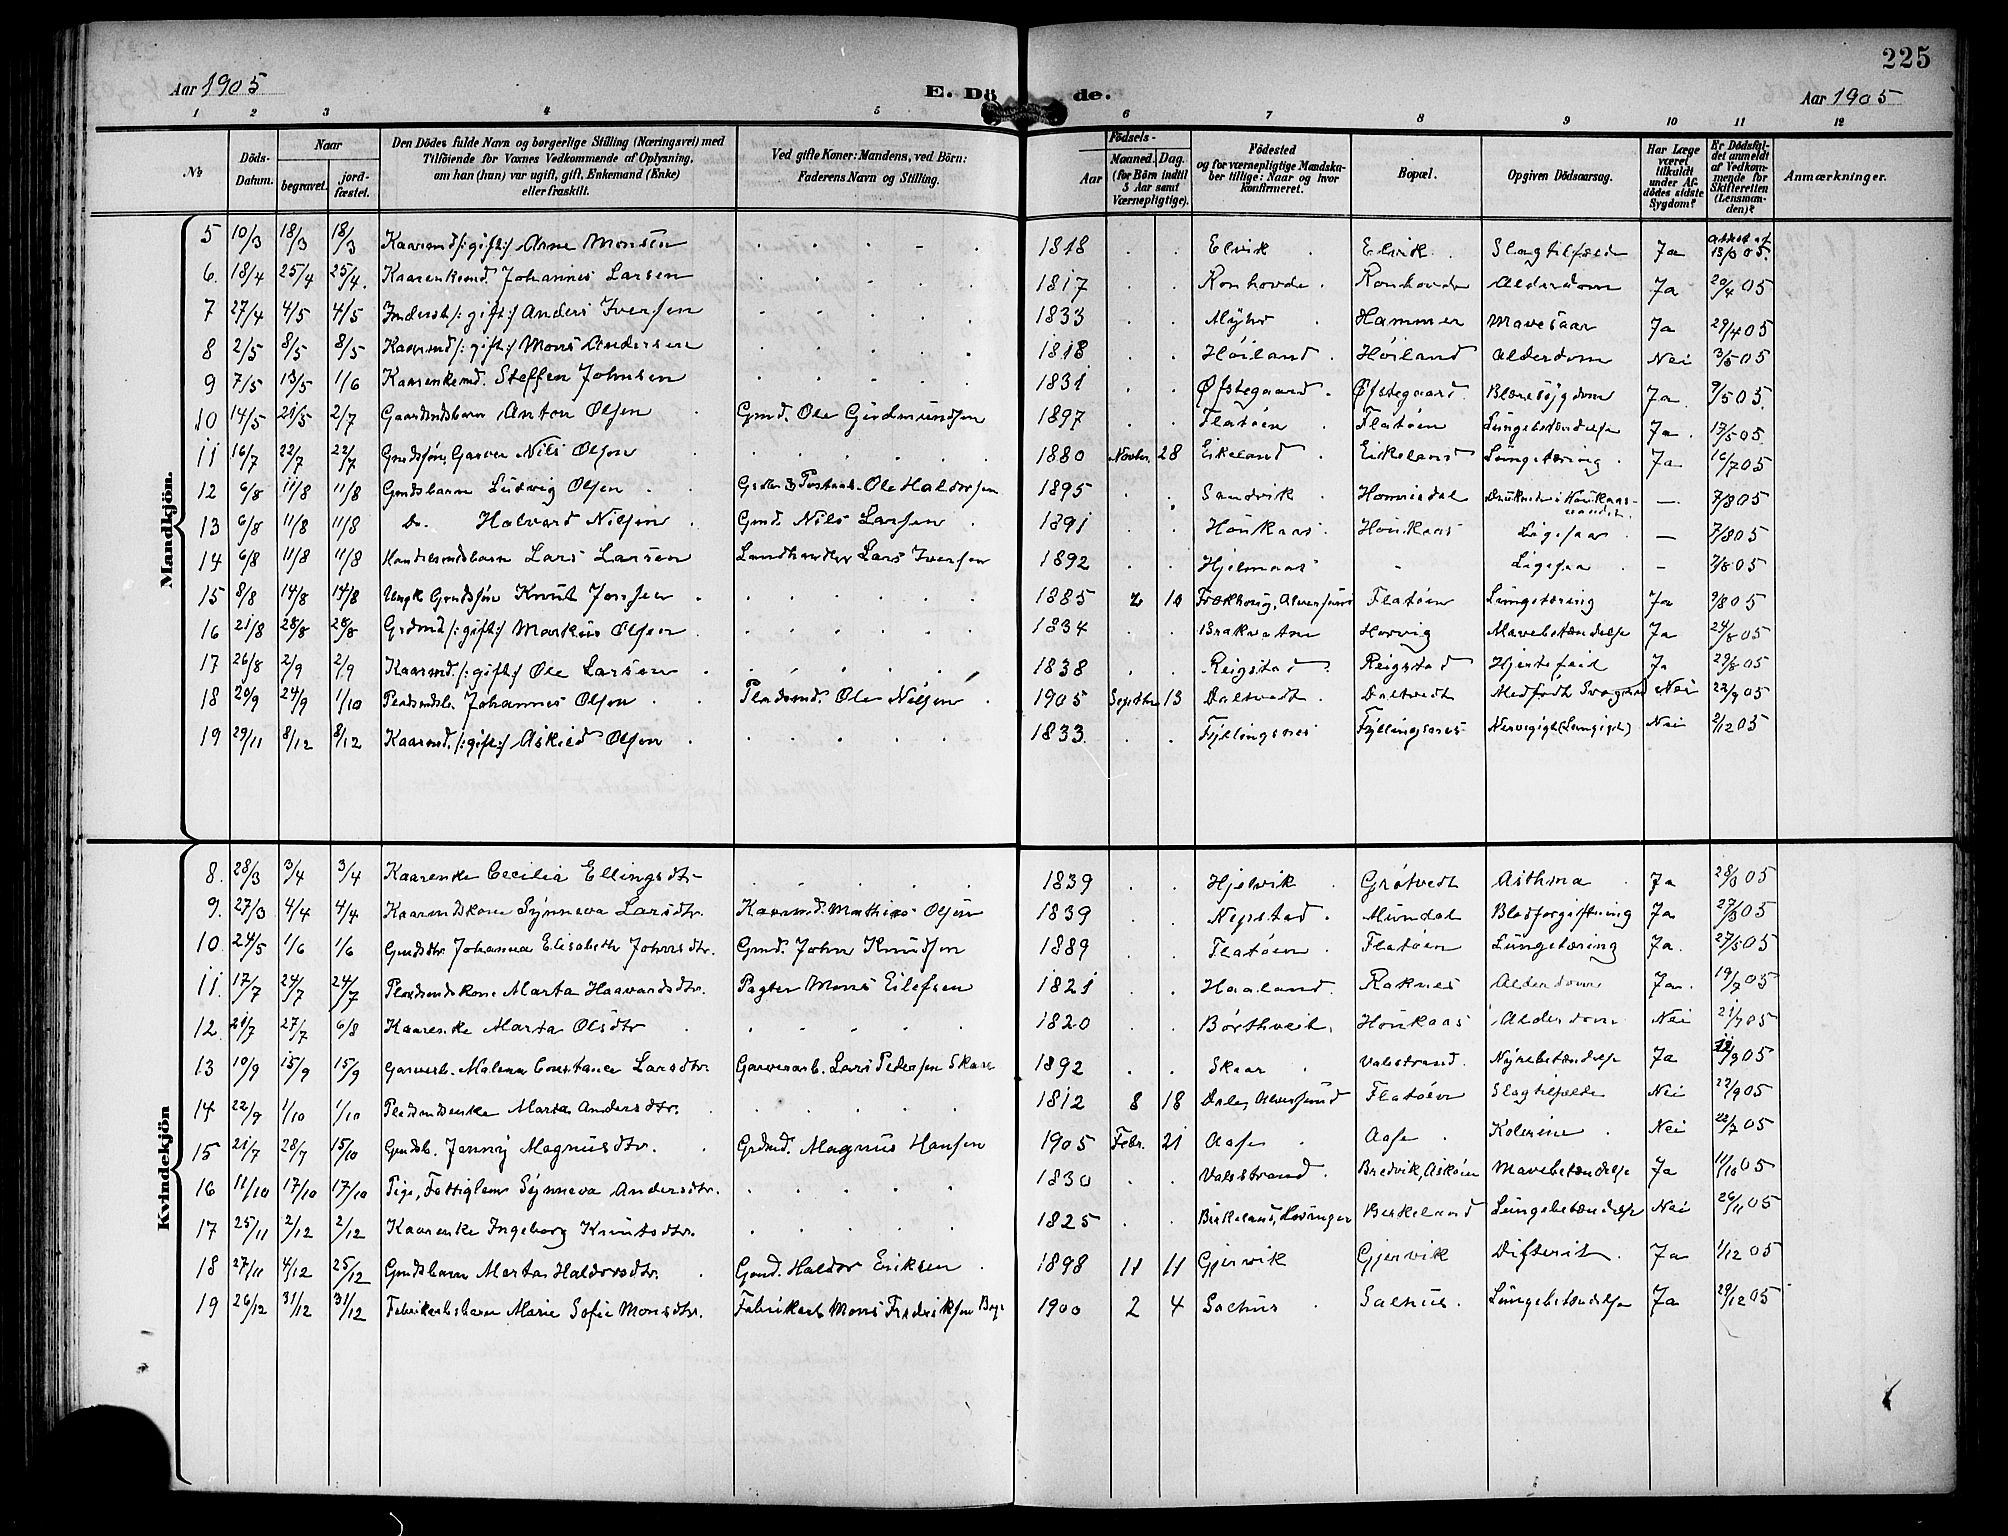 225
Aar 1905
E. Dö de.
Aar 1905
1 2 3 4 5 6 7 8 9 10 11 12
No
Döds-Datum.
Naar
begravet.
jord-fæstet.
Den Dödes fulde Navn og borgerlige Stilling (Næringsvei) med
Tilföiende for Voxnes Vedkommende af Oplysning,
om han (hun) var ugift, gift, Enkemand (Enke)
eller fraskilt.
Ved gifte Koner: Mandens, ved Börn:
Faderens Navn og Stilling.
Födsels-
Aar
Maaned. Dag.
(for Börn indtil
5 Aar samt
Værnepligtige).
Födested
og for værnepligtige Mandska-
ber tillige: Naar og hvor
konfirmeret.
Bopæl.
Opgiven Dödsaarsag.
Har Læge
været
tilkaldt
under Af-
dödes sidste
Sygdom?
Er Dödsfal-
det anmeldt
af Vedkom-
mende for
Skifteretten
(Lensman-
den)?
Anmærkninger.
Mandkjön.
5 10/3 18/3 18/3 Kaarmd /: gift :/ Arne Monsen 1818 Elvik Elvik Slagtilfælde Ja 13/3 05.
6. 18/4 25/4 25/4. Kaarenkemd. Johannes Larsen 1817 Ronhovde Ronhovde Alderdom Ja 20/4 05
7 27/4 4/5 4/5 Inderst /: gift :/ Anders Iversen 1833 Myhr Hammer Mavesaar Ja 29/4 05
8 2/5 8/5 8/5 Kaarmd /: gift :/ Mons Andersen 1818 Höiland Höiland Alderdom Nei 3/5 05
9 7/5 13/5 1/6 Kaarenkemd. Steffen Johnsen 1831 Øfstegaard Øfstegaard Blæresÿgdom Ja 9/5 05.
10 14/5 21/5 2/7 Gaardmdsbarn Anton Olsen Gmd. Ole Gudmundsen 1897 Flatöen Flatöen Lungebetændelse Ja 17/5 05.
11 16/7 22/7 22/7 Gmdssön, Garver Nils Olsen 1880 Novbr. 28 Eikeland Eikeland Lungetæring Ja 16/7 05
12 6/8 11/8 11/8 Gmdsbarn Ludvig Olsen Ole Haldorsen 1895 Sandvik Hom­misdal Druknede i Houkaas- vandet. — 7/8 05
13 6/8 11/8 11/8 Do. Halvard Nilsen Gmd. Nils Larsen 1891 Houkaas Houkaas Ligesaa — 7/8 05
14 6/8 11/8 11/8 Handelsmdsbarn Lars Larsen Landhandler Lars Iversen 1892 Hjelmaas " Ligesaa - 7/8 05
15 8/8 14/8 14/8 Ungk. Gmdssön Knut Jonsen 1885 2 10 Alversund Flatöen Lungetæring Ja 9/8 05
16 21/8 28/8 28/8 Grdmd /: gift :/ Markus Olsen 1834 Brakvatne Horvig Mavebetændelse Ja 24/8 05
17 26/8 2/9 2/9 Kaarmd. /: gift :/ Ole Larsen 1838 Reigstad Reigstad Hjertefeil Ja 29/8 05
18 20/9 24/9 1/10 Pladsmdsb. Johannes Olsen Pladsmd. Ole Nilsen 1905 Septbr. 13 Daltvedt Daltvedt Medfödt Svaghed Nei 22/9 05
19 29/11 8/12 8/12 Kaarmd. /: gift :/ Askild Olsen 1833. Fÿllingsnes Fÿllingsnes Nervegigt Nei 2/12 05
Kvindekjön
8. 28/3 3/4 3/4 Kaarenke Cecilia Ellingsdtr 1839 Hjelvik Grötvedt Asthma Ja 28/3 05
9. 27/3 4/4 4/4 Kaarmdskone Sÿnneva Larsdtr. Kaarmd. Mathias Olsen 1839 Nepstad Mundal Blodforgiftning Ja 27/3 05
10 24/5 1/6 1/6 Gmdsdtr. Johanna Elisabeth Johnsdtr. Gmd. John Knudsen 1889 Flatöen Flatöen Lungetæring Ja 27/5 05
11. 17/7 24/7 24/7 Pladsmdskone Marta Haavardsdtr. Pagter Mons Eilefsen 1821 Haaland Raknes Alderdom Ja 19/7 05
12. 21/7 27/7 6/8 Kaarenke Marta Olsdtr 1820 Börthveit Houkaas Alderdom Nei 21/7 05
13 10/9 15/9 15/9 Garverb. Malena Constance Larsdtr. Garverarb. Lars Pedersen Skaar 1892 Skaar Valestrand Nÿrebetændelse Ja 12/9 05
14 22/9 1/10 1/10 Pladsmdsenke Marta Andersdtr. 1812 8 18 Dale, Alversund Flatöen Slagtilfælde Nei 22/9 05
15 21/7 28/7 15/10 Gmdsb. Jennÿ Magnusdtr. Grdmd. Magnus Hansen 1905 Febr. 21 Aase Aase Kolerine Nei 22/7 05
16 11/10 17/10 17/10 Pige, Fattiglem Sÿnneva Andersdtr. 1830 Valestrand Bredvik, Asköen Mavebetændelse Ja 11/10 05
17 25/11 2/12 2/12 Kaarenke Ingeborg Knutsdtr. 1825 Birkeland, Hosanger Birkeland Lungebetændelse Nei 26/11 05
18 27/11 4/12 25/12 Gmdsbarn Marta Haldorsdtr. Gmd. Haldor Eriksen 1898 11 11 Gjervik Gjervik Difterit Ja 1/12 05
19 26/12 31/12 31/12 Fabrikarbsbarn Marie Sofie Monsdtr. Fabrikarb. Mons Fredriksen 1900 2 4 Salhus Salhus Lungebetændelse Ja 29/12 05